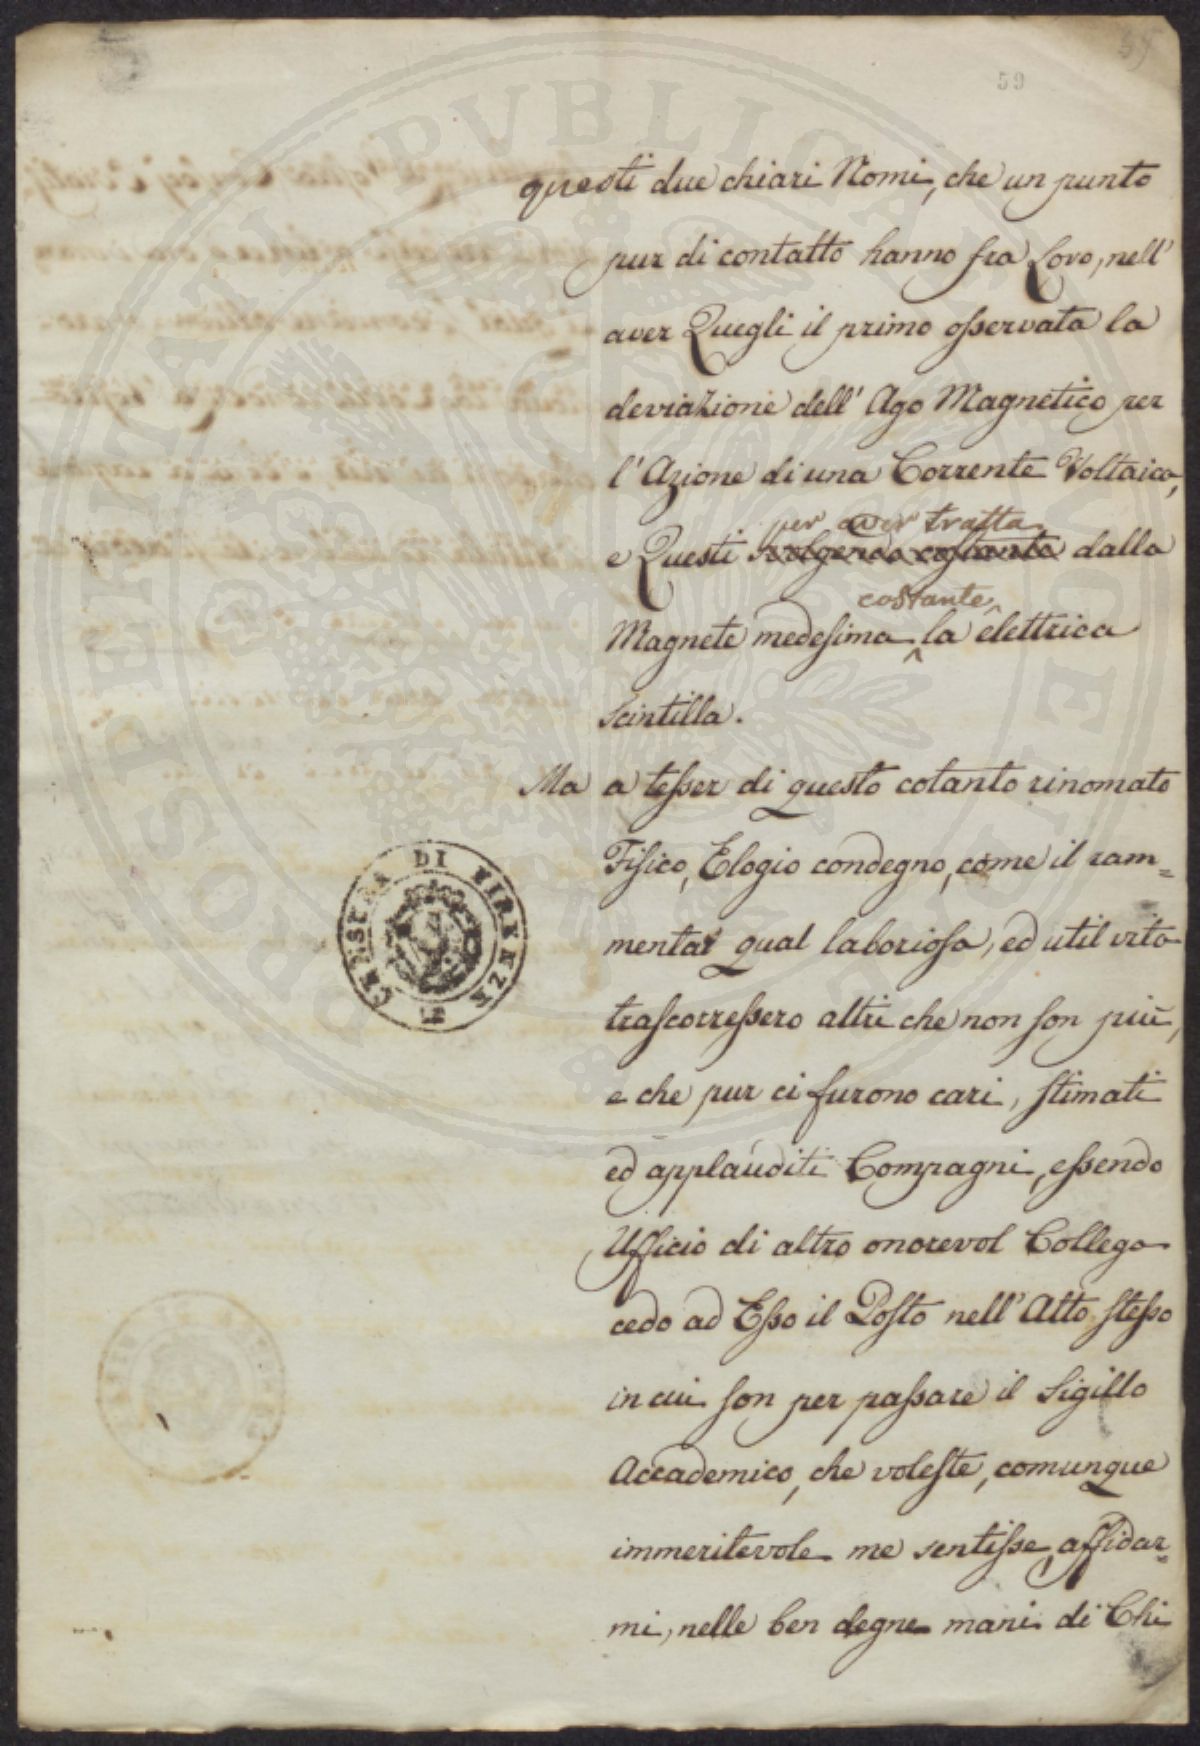 59
questi due chiari Nomi, che un punto
pur di contatto hanno fra Loro, nell'
aver Quegli il primo osservata la
deviazione dell' Ago Magnetico per
l'Azione di una Corrente Voltaica,
per aver tratta
e Questi svolgendo costante dalla
costante
Magnete medesima la elettrica
scintilla.
Ma a tesser di questo cotanto rinomato
Fisico, Elogio condegno, come il ram=
mentar qual laboriosa, ed util vita
trascorressero altri che non son più,
e che pur ci furono cari, stimati
ed applauditi Compagni, essendo
Ufficio di altro onorevol Collega
cedo ad Esso il Posto nell'Atto stesso
in cui son per passare il Sigillo
Accademico, che voleste, comunque
immeritevole me sentisse, affidar=
mi, nelle ben degne mani di Chi
CENSURA DI FIRENZE
PROSPERITATI PUBLICAE AUGENDAE